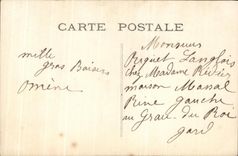 CARTE POSTALE
mille
gros Baisers
Monsieur
Langlois
chez Madame Rivier
maison Massal
Rive gauche
au Grau du Roi
Gard